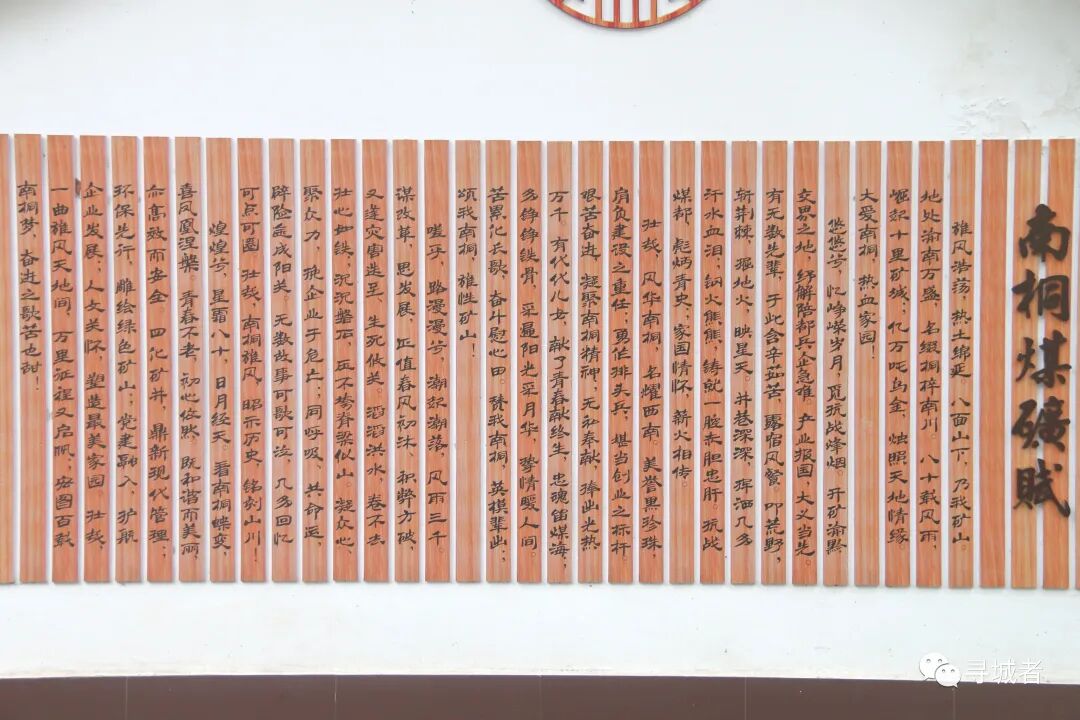 南桐煤礦赋
雄风浩荡，热土绵延。八面山下，乃我矿山。
地处渝南万盛，名缀桐梓南川。八十载风雨，
崛起十里矿城，亿万吨乌金，烛照天地情缘
大爱南桐，热血家园！
悠悠兮，忆峥嵘岁月，觅抗战烽烟。开矿渝黔
交界之地，纾解陪都兵企急难，产业报国，大义当先。
有无数先辈，于此含辛茹苦，露宿风餐。叩荒野，
斩荆棘，掘地火，映星天。井巷深深，挥洒几多
汗水血泪，钢火熊熊，铸就一腔赤胆忠肝。抗战
煤都，彪炳青史，家国情怀，薪火相传。
壮哉，风华南桐，名耀西南，美誉黑珍珠，
肩负建设之重任，勇作排头兵，堪当创业之标杆。
艰苦奋进，凝聚南桐精神，无私奉献，捧出光热
万千。有代代儿女，献了青春献终生，忠魂留煤海，
多铮铮铁骨，采罢阳光采月华，挚情暖人间。
苦累化长歌，奋斗慰心田。赞我南桐，英模辈出，
颂我南桐，雄性矿山！
嗟乎，路漫漫兮，潮起潮落，风雨三千。
谋改革，思发展，正值春风初沐，积弊方破，
又逢灾害迭至，生死攸关。滔滔洪水，卷不去
壮心如铁，沉沉磐石，压不垮脊梁似山。凝众心，
聚众力，挽企业于危亡，同呼吸，共命运，
辟险壶成阳关。无数故事可歌可泣，几多回忆
可点可圈。壮哉，南桐雄风，昭示历史，铭刻山川！
煌煌兮，星霜八十，日月经天。看南桐蝶变，
喜凤凰涅槃，青春不老，初心依然，既和谐而美丽，
亦高效而安全。四化矿井，鼎新现代管理；
环保先行，雕绘绿色矿山；党建融入，护航
企业发展；人文关怀，塑造最美家园。壮哉，
一曲雄风天地间，万里征程又启帆，宏图百载
南桐梦，奋进之歌苦也甜！
寻城者